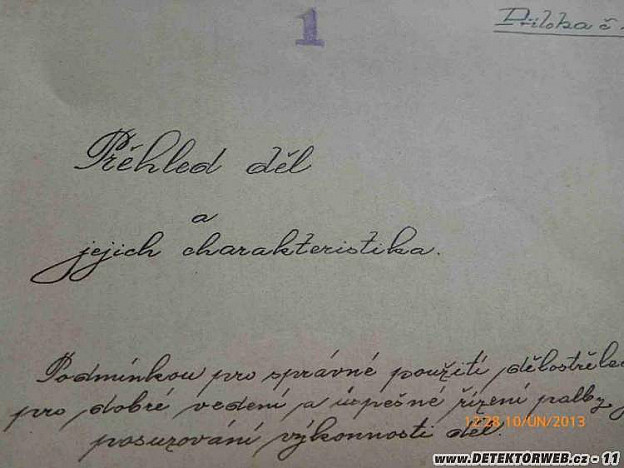 1
Příloha č.
Přěhled děl
a
jejich charakteristika.
Podmínkou pro správné použití dělostřelec
pro dobré vedení a úspešné řízení palby, j
posuzování výkonnosti děl.
12:28 10/ÚN/2013
WWW.DETEKTORWEB.cz - 11